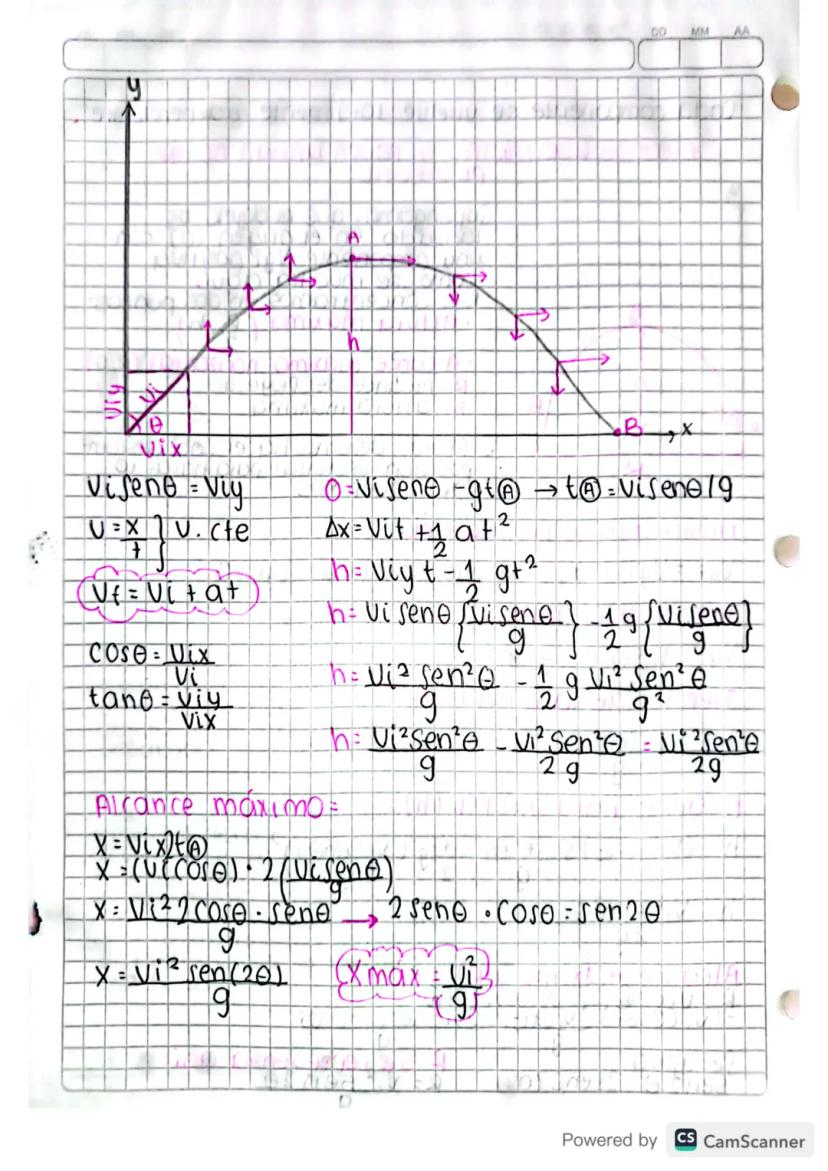 DD MM AA
y
A
h
Viy
Vi
θ
Vix
B
x
Visenθ = Viy
V = x/t } V. cte
Vf = Vi + at
cosθ = Vix/Vi
tanθ = Viy/Vix
0 = Visenθ - gtⒶ → tⒶ = Visenθ/g
Δx = Vit + 1/2 at²
h = Viy t - 1/2 gt²
h = Vi senθ {Visenθ/g} - 1/2 g {Visenθ/g}
h = Vi² sen²θ/g - 1/2 g Vi² sen²θ/g²
h = Vi² sen²θ/g - Vi² sen²θ/2g = Vi² sen²θ/2g
Alcance máximo =
X = Vix2tⒶ
X = (Vi cosθ) · 2 (Visenθ/g)
X = Vi² 2cosθ · senθ/g → 2 senθ · cosθ = sen2θ
X = Vi² sen(2θ)/g
Xmáx = Vi²/g
Powered by CS CamScanner